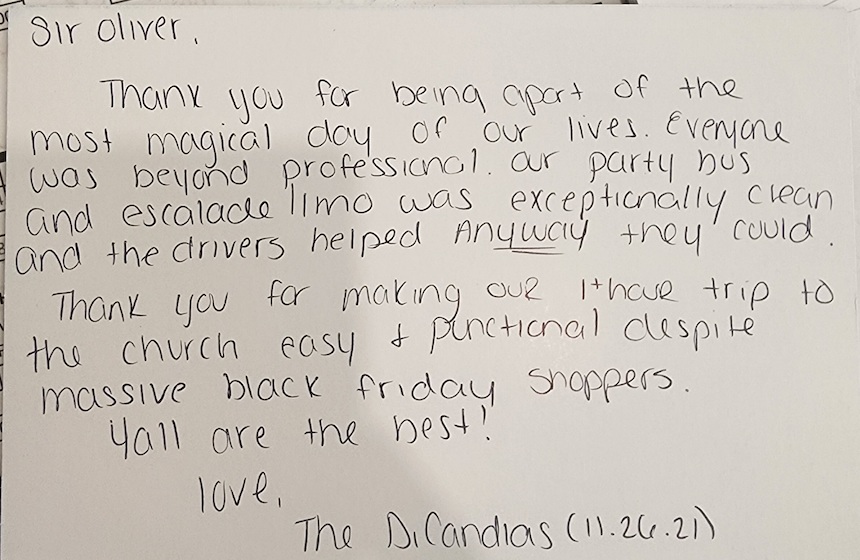 Sir Oliver,
Thank you for being apart of the
most magical day of our lives. Everyone
was beyond professional. Our party bus
and escalade limo was exceptionally clean
and the drivers helped Anyway they could.
Thank you for making our 1+hour trip to
the church easy & punctional despite
massive black friday shoppers.
Yall are the best!
love,
The DiCandias (11.26.21)